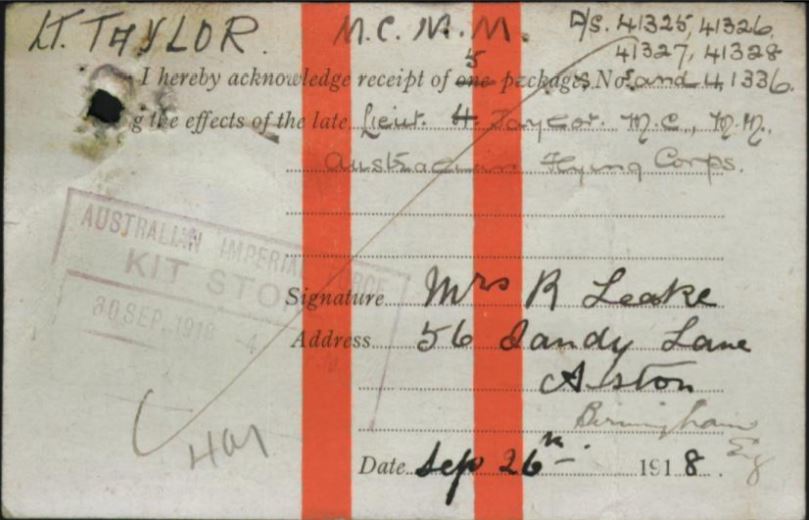 LT. TAYLOR. M.C. M.M. D/S. 41325, 41326.
41327, 41328
I hereby acknowledge receipt of one 5 packages Nos. and 41336.
g the effects of the late Lieut. H Taylor. M.C., M.M.,
Australian Flying Corps.
AUSTRALIAN IMPERIAL FORCE
KIT STORE
30 SEP. 1918
Signature Mrs R Leake
Address 56 Sandy Lane
Aston
Birmingham
Eng
Date Sep 26th 1918.